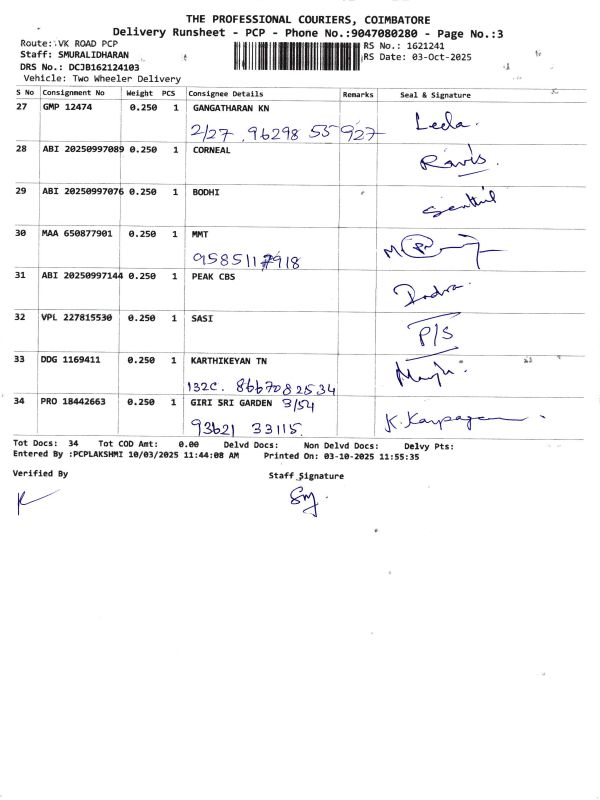 THE PROFESSIONAL COURIERS, COIMBATORE
Delivery Runsheet - PCP - Phone No.:9047080280 - Page No.:3
Route: VK ROAD PCP
RS No.: 1621241
Staff: SMURALIDHARAN
RS Date: 03-Oct-2025
DRS No.: DCJB162124103
Vehicle: Two Wheeler Delivery
S No Consignment No Weight PCS Consignee Details Remarks Seal & Signature
27 GMP 12474 0.250 1 GANGATHARAN KN Leela.
2/27 .96298 55927
28 ABI 20250997089 0.250 1 CORNEAL
29 ABI 20250997076 0.250 1 BODHI Senthil
30 MAA 650877901 0.250 1 MMT
31 ABI 20250997144 0.250 1 PEAK CBS Indra.
32 VPL 227815530 0.250 1 SASI P/S
33 DDG 1169411 0.250 1 KARTHIKEYAN TN
132C. 8667082534
34 PRO 18442663 0.250 1 GIRI SRI GARDEN 3/54 K.Karpagam
93621 33115.
Tot Docs: 34 Tot COD Amt: 0.00 Delvd Docs: Non Delvd Docs: Delvy Pts:
Entered By :PCPLAKSHMI 10/03/2025 11:44:08 AM Printed On: 03-10-2025 11:55:35
Verified By Staff Signature